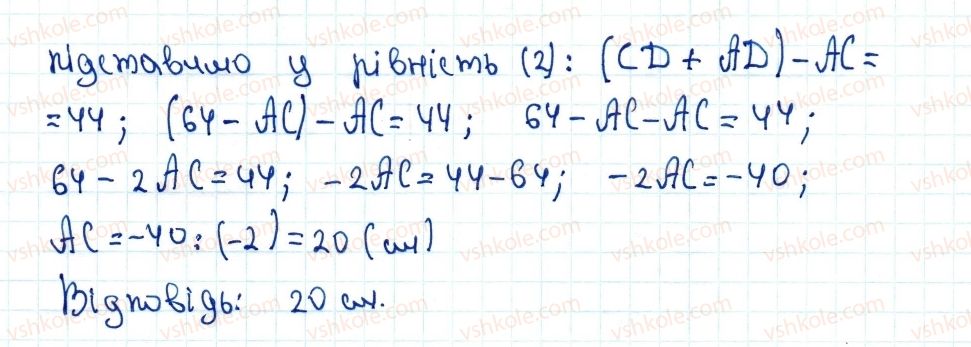 підставимо у рівність (2): (CD + AD) - AC =
= 44; (64 - AC) - AC = 44; 64 - AC - AC = 44;
64 - 2AC = 44; -2AC = 44 - 64; -2AC = -40;
AC = -40 : (-2) = 20 (см)
Відповідь: 20 см.
vshkole.com